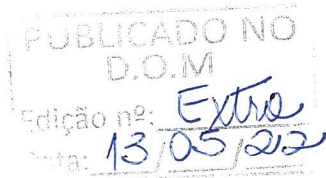 PUBLICADO NO
D.O.M
Edição nº: Extra
Data: 13/05/22